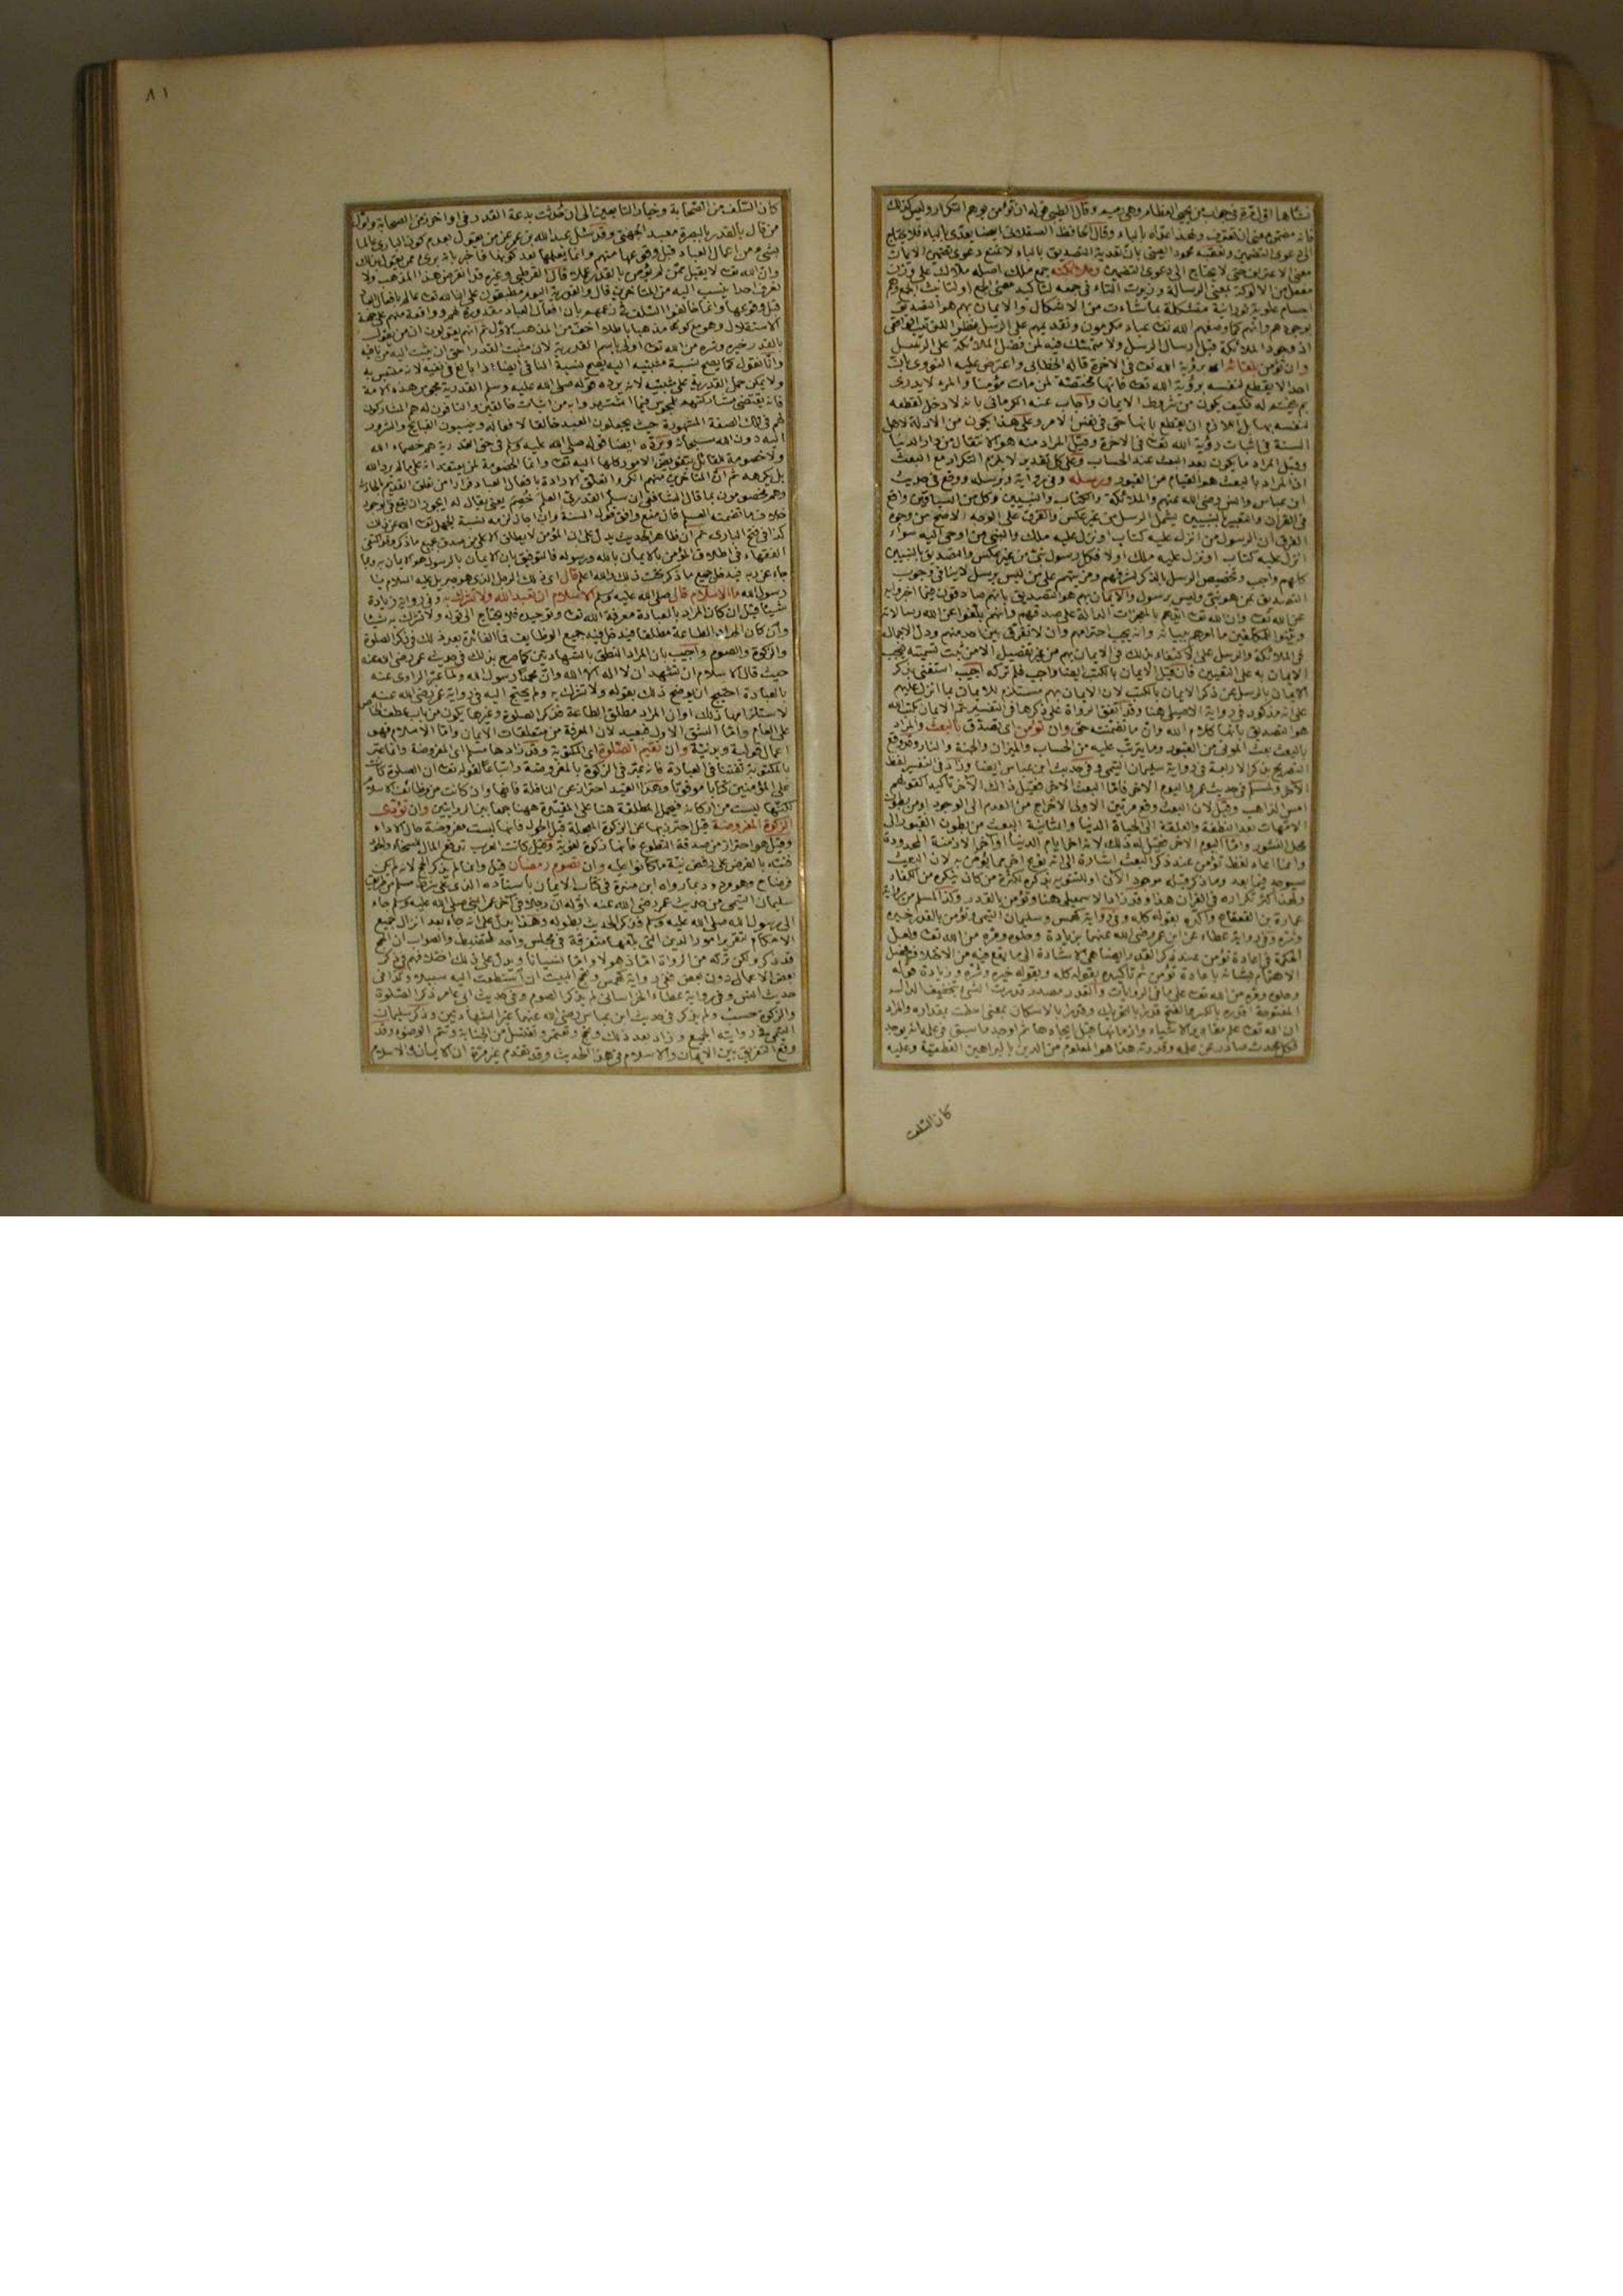 وقال الطيبي قوله ان تؤمن يوهم التكرار وليس كذلك
فانه مضمن معنى ان تعترف ولهذا عداه بالباء وقال الحافظ العسقلاني ايضا يعدى بالباء فلا يحتاج
الى دعوى التضمين وتعقبه محمود العيني بان تعدية التصديق بالباء لا تمنع دعوى تضمين الايمان
معنى الاعتراف حتى لا يحتاج الى دعوى التضمين وملائكته جمع ملك اصله ملاك على وزن
مفعل من الالوكة بمعنى الرسالة وزيدت التاء في جمعه لتاكيد معنى الجمع او لتانيث الجمع وهم
اجسام علوية نورانية متشكلة بما شاءت من الاشكال والايمان بهم هو التصديق
بوجودهم وانهم كما وصفهم الله تعا عباد مكرمون وتقديمهم على الرسل
اذ وجود الملائكة قبل ارسال الرسل ولا متمسك فيه لمن فضل الملائكة على الرسل
وان تؤمن بلقائه اى برؤية الله تعا في الاخرة قاله الخطابي واعترض عليه النووي بان
احدا لا يقطع لنفسه برؤية الله تعا فانها مختصة لمن مات مؤمنا والمرء لا يدرى
بم يختم له فكيف يكون من شروط الايمان واجاب عنه الكرماني بانه لا دخل لقطعه
لنفسه بها بل اللازم ان يقطع بانها حق في نفس الامر وعلى هذا يكون من الادلة لاهل
السنة في اثبات رؤية الله تعا في الاخرة وقيل المراد منه هو الانتقال من دار الدنيا
وقيل المراد ما يكون بعد البعث عند الحساب وعلى كل تقدير لا يلزم التكرار مع البعث
اذ المراد بالبعث هو القيام من القبور ورسله وفي رواية وبرسله ووقع في حديث
ابن عباس وانس رضى الله عنهم والملائكة والكتاب والنبيين وكل من السياقين واقع
في القران والتعبير بالنبيين يشمل الرسل من غير عكس والفرق على الوجه الاصح من وجوه
الفرق ان الرسول من انزل عليه كتاب او نزل عليه ملك والنبي من اوحى اليه سواء
انزل عليه كتاب او نزل عليه ملك او لا فكل رسول نبي من غير عكس
التصديق بمن هو نبي وليس برسول والايمان بهم هو التصديق بانهم صادقون فيما اخبروا به
عن الله تعا وان الله تعا ايدهم بالمعجزات الدالة على صدقهم وانهم بلغوا عن الله رسالاته
وبينوا للمكلفين ما امرهم ببيانه وانه يجب احترامهم وان لا نفرق بين احد منهم
الايمان بالرسل عن ذكر الايمان بالكتب لان الايمان بهم مستلزم للايمان بما انزل عليهم
على انه مذكور في رواية الاصيلي هنا وقد اتفق الرواة على ذكرها في التفسير ثم الايمان بكتب الله
هو التصديق بانها كلام الله وان ما تضمنته حق وان تؤمن اى تصدق بالبعث والمراد
بالبعث بعث الموتى من القبور وما يترتب عليه من الحساب والميزان والجنة والنار
التصريح بذكر الاربعة في رواية سليمان التيمي وفي حديث ابن عباس ايضا وزاد في التفسير لفظ
الآخر
امس الذاهب وقيل لان البعث وقع مرتين الاولى الاخراج من العدم الى الوجود او من بطون
الامهات بعد النطفة والعلقة الى الحياة الدنيا والثانية البعث من بطون القبور الى
محل النشور واما اليوم الاخر فقيل له ذلك لانه اخر ايام الدنيا او آخر الازمنة المحدودة
وانما اعاد لفظ تؤمن عند ذكر البعث اشارة الى انه نوع اخر مما يؤمن به لان البعث
سيوجد فيما بعد وما ذكر قبله موجود الآن او للتنويه بذكره لكثرة من كان ينكره من الكفار
ولهذا كثر تكراره في القران هذا
عمارة بن القعقاع واكده بقوله كله وفي رواية كهمس وسليمان التيمي وتؤمن بالقدر خيره
وشره وفي رواية عطاء عن ابن عمر رضى الله عنهما بزيادة وحلوه ومره من الله تعا ولعل
الحكمة في اعادة تؤمن عند ذكر القدر ايضا هي الاشارة الى ما يقع فيه من الاختلاف
الاهتمام بشانه باعادة تؤمن ثم تاكيده بقوله كله وبقوله خيره وشره وزيادة قوله
وحلوه ومره من الله تعا على ما في الروايات والقدر مصدر قدرت الشئ بتخفيف الدال
ان الله تعا علم مقادير الاشياء وازمانها قبل ايجادها ثم اوجد ما سبق في علمه انه يوجد
فكل محدث صادر عن علمه وقدرته هذا هو المعلوم من الدين بالبراهين القطعية وعليه
كان السلف
٨١
كان السلف من الصحابة وخيار التابعين الى ان حدثت بدعة القدر في اواخر زمن الصحابة واول
من قال بالقدر بالبصرة معبد الجهني وقد سئل عبدالله بن عمر عن من يقول بعدم كون البارى عالما
بشئ من اعمال العباد قبل وقوعها منهم وانما يعلمها بعد كونها فاخبر بانه برئ ممن يقول ذلك
وان الله تعا لا يقبل ممن لم يؤمن بالقدر عملا قال القرطبي وغيره قد انقرض هذا المذهب ولا
نعرف احدا ينسب اليه من المتاخرين قال والقدرية اليوم مطبقون على ان الله تعا عالم بافعال العباد
قبل وقوعها وانما خالفوا السلف في زعمهم بان افعال العباد مقدورة لهم وواقعة منهم على جهة
الاستقلال وهو مع كونه مذهبا باطلا اخف من المذهب الاول ثم انهم يقولون ان من يقول
بالقدر خيره وشره من الله تعا اولى باسم القدرية لان مثبت القدر احق ان ينسب اليه من نافيه
وانا نقول كما يصح نسبة مثبتيه اليه يصح نسبة النافي ايضا اذا بالغ في نفيه لانه متلبس به
ولا يمكن حمل القدرية على مثبتيه لانه يرده قوله صلى الله عليه وسلم القدرية مجوس هذه الامة
فانه يقتضى مشاركتهم للمجوس فيما اشتهروا به من اثبات خالقين والنافون له هم المشاركون
لهم في تلك الصفة المشهورة حيث يجعلون العبد خالقا لافعاله وينسبون القبايح والشرور
اليه دون الله سبحانه ويرده ايضا قوله صلى الله عليه وسلم في حق القدرية هم خصماء الله
ولا خصومة للقائل بتفويض الامور كلها اليه تعا وانما الخصومة لمن يعتقد انه
بل يكرهه ثم ان المتاخرين منهم انكروا تعلق الارادة بافعال العباد فرارا من تعلق القديم بالحادث
وهم مخصومون بما قال الشافعي ان سلم القدري العلم خصم يعنى يقال له ايجوز ان يقع في الوجود
خلاف ما تضمنه العلم فان منع وافق قول السنة وان اجاز لزمه نسبة الجهل تعا الله عن ذلك
كذا في فتح البارى ثم ان ظاهر الحديث يدل على ان المؤمن لا يطلق الا على من صدق بجميع ما ذكر
الفقهاء في اطلاق المؤمن بالايمان بالله ورسوله فالتوفيق بان الايمان بالرسول هو الايمان به وبما
جاء عن ربه فيدخل جميع ما ذكر تحت ذلك والله اعلم قال اى ذلك الرجل الذى هو جبريل عليه السلام يا
رسول الله ما الاسلام قال صلى الله عليه وسلم الاسلام ان تعبد الله ولا تشرك به وفي رواية زيادة
شيئا قيل ان كان المراد بالعبادة معرفة الله تعا وتوحيده فلا يحتاج الى قوله ولا تشرك به شيئا
وان كان المراد الطاعة مطلقا فيدخل فيه جميع الوظايف فما الفائدة بعد ذلك في ذكر الصلوة
والزكوة والصوم واجيب بان المراد النطق بالشهادتين كما صرح بذلك في حديث عمر رضى الله عنه
حيث قال الاسلام ان تشهد ان لا اله الا الله وان محمدا رسول الله ولما عبر الراوى عنه
بالعبادة احتيج ان يوضح ذلك بقوله ولا تشرك به ولم يحتج اليه في رواية عمر رضى الله عنه
لاستلزامها ذلك او ان المراد مطلق الطاعة فذكر الصلوة وغيرها يكون من باب عطف الخاص
على العام واما الشق الاول فبعيد لان المعرفة من متعلقات الايمان واما الاسلام فهو
اعمال قولية وبدنية وان تقيم الصلوة اى المكتوبة وقد زادها مسلم
بالمكتوبة تفننا في العبادة فانه عبر في الزكوة بالمفروضة واتباعا لقوله تعا ان الصلوة كانت
على المؤمنين كتابا موقوتا وهذا القيد احتراز عن النافلة فانها وان كانت من وظائف الاسلام
لكنها ليست من اركانه فيحمل المطلقة هنا على المقيدة ههنا جمعا بين الروايتين وان تؤدى
الزكوة المفروضة قيل احترز بها عن الزكوة المعجلة قبل الحول فانها ليست مفروضة حال الاداء
وقيل هو احتراز من صدقة التطوع فانها زكوة لغوية وقيل كانت العرب تدفع المال للسخاء والجود
فنبه بالفرض على رفض نية ما كانوا عليه وان تصوم رمضان قيل وانما لم يذكر الحج لانه لم يكن
فرض وهو مردود بما رواه ابن منده في كتاب الايمان باسناده الذى على شرط مسلم من طريق
سليمان التيمي من حديث عمر رضى الله عنه اوله ان رجلا في آخر عمر النبي صلى الله عليه وسلم جاء
الى رسول الله صلى الله عليه وسلم فذكر الحديث بطوله وهذا يدل على انه جاء بعد انزال جميع
الاحكام لتقرير امور الدين التي بلغها متفرقة في مجلس واحد لتنضبط والصواب ان الحج
قد ذكر ولكن تركه من الرواة اما ذهولا واما نسيانا ويدل على ذلك اختلافهم في ذكر
بعض الاعمال دون بعض ففي رواية كهمس وتحج البيت ان استطعت اليه سبيلا وكذا في
حديث انس وفي رواية عطاء الخراساني لم يذكر الصوم وفي حديث ابي عامر ذكر الصلوة
والزكوة حسب ولم يذكر في حديث ابن عباس رضى الله عنهما غير الشهادتين وذكر سليمان
التيمي في روايته الجميع وزاد بعد ذلك وتحج وتعتمر وتغتسل من الجنابة وتتم الوضوء وقد
وقع التفريق بين الايمان والاسلام في هذا الحديث وقد تقدم غير مرة ان الايمان والاسلام